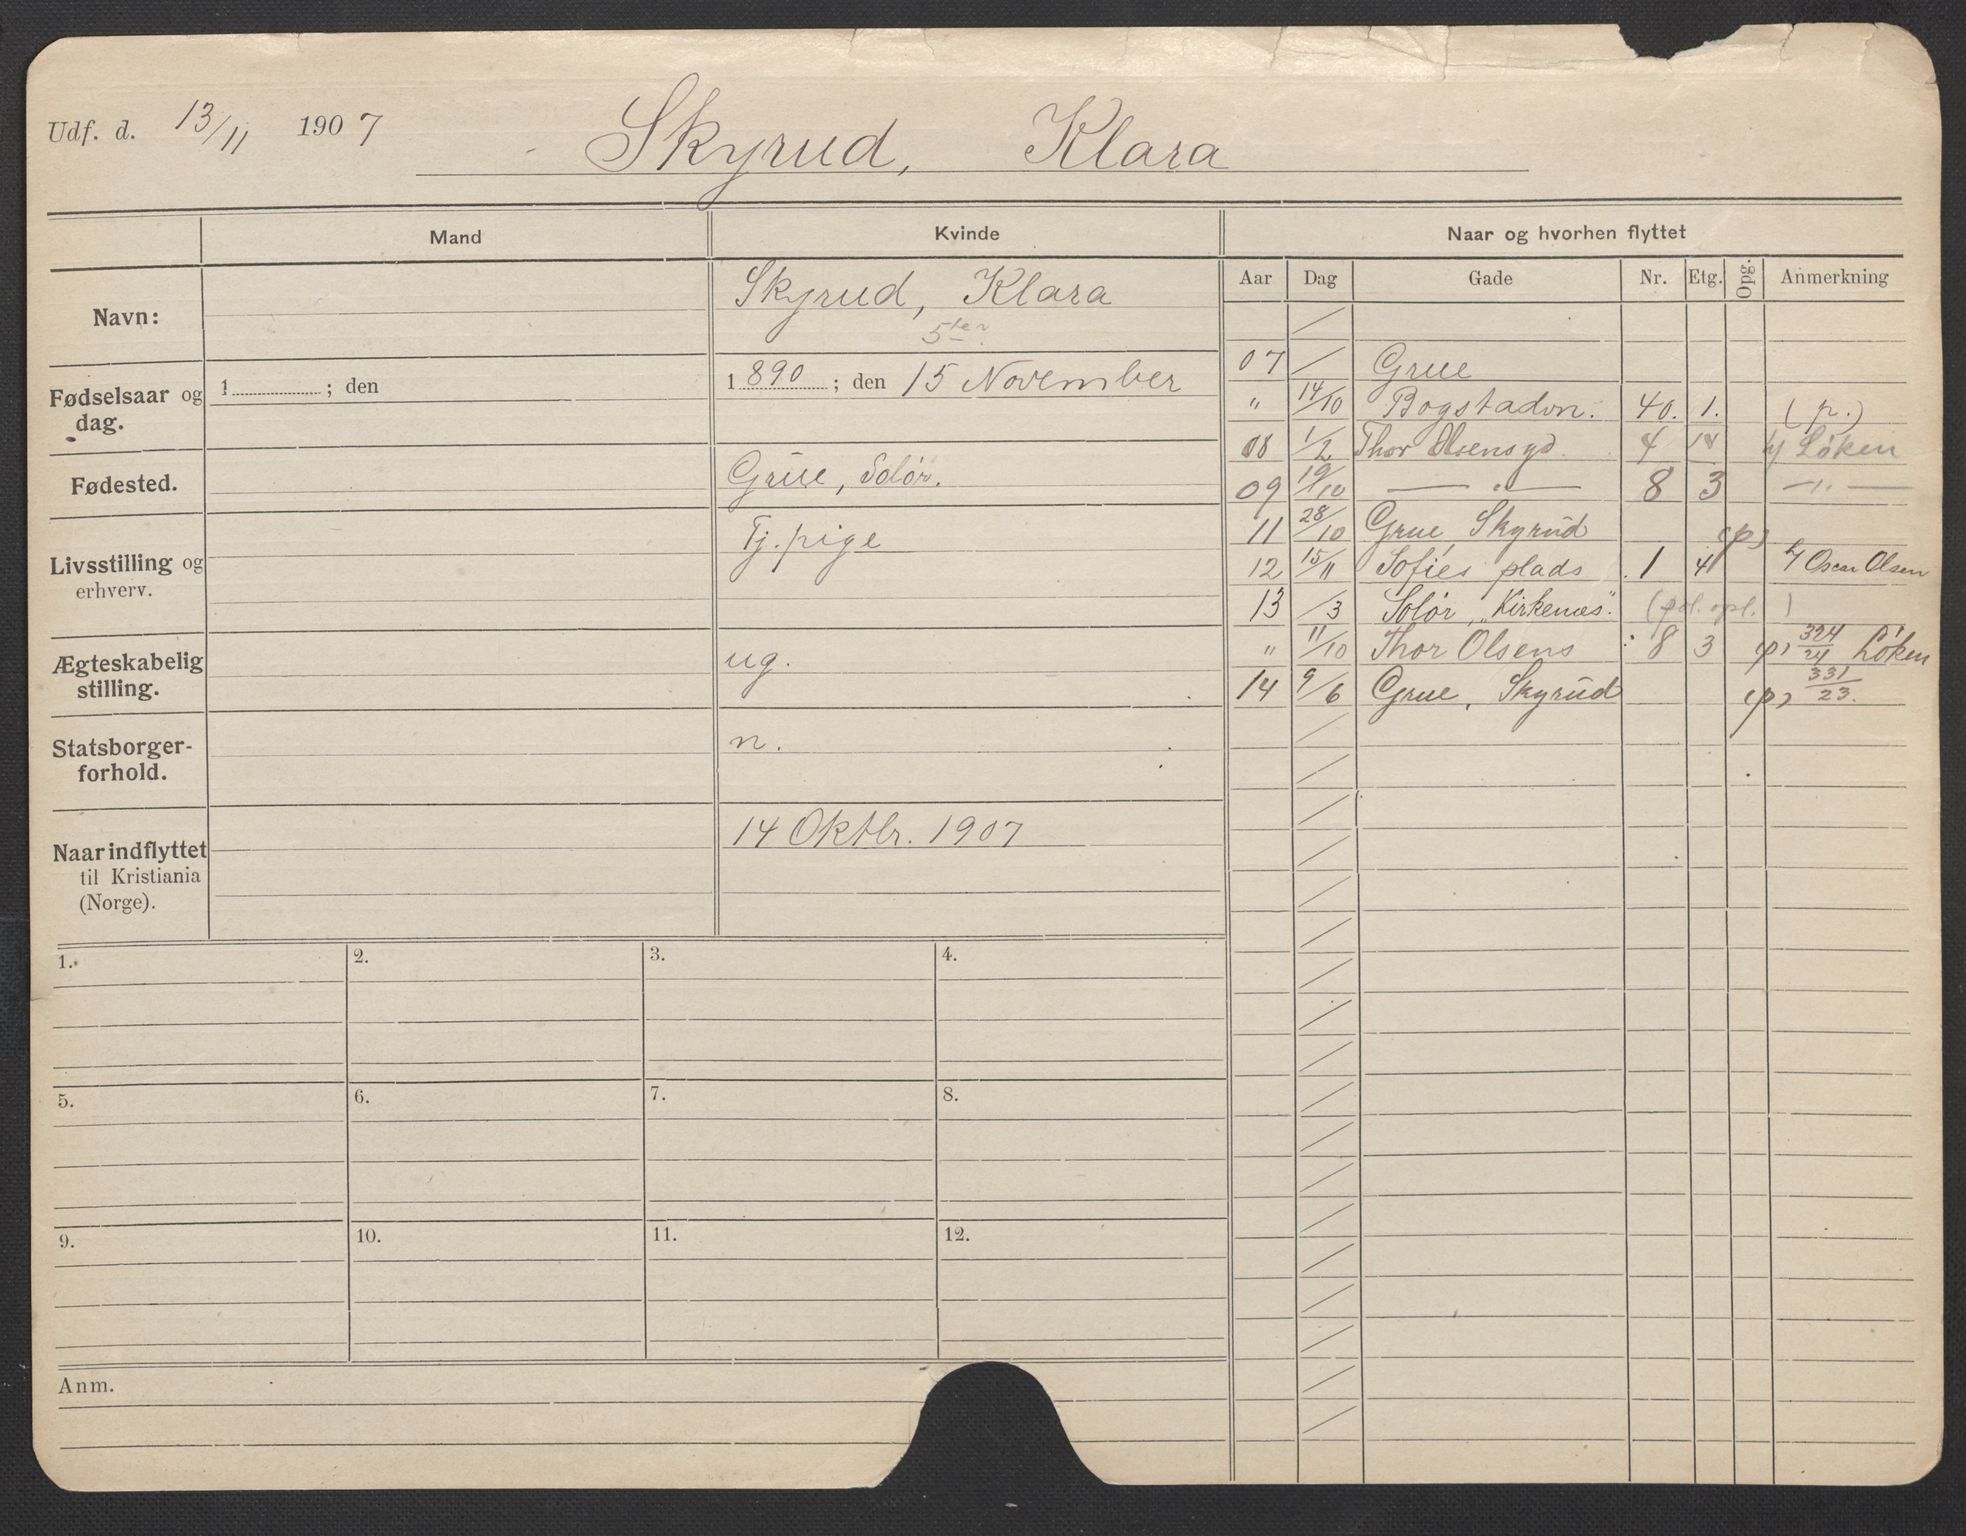 Udf. d. 13/11 1907 Skyrud, Klara
Mand Kvinde Naar og hvorhen flyttet
Aar Dag Gade Nr. Etg. Opg. Anmerkning
Navn: Skyrud, Klara
5ter
Fødselsaar og dag. 1 ; den 1890 ; den 15 November
Fødested. Grue, Solør.
Livsstilling og erhverv. Tj. pige
Ægteskabelig stilling. ug.
Statsborger-
forhold. n.
Naar indflyttet
til Kristiania
(Norge). 14 Oktbr. 1907
07 / Grue
" 14/10 Bogstadvn. 40. 1. (p.)
08 1/2 Thor Olsensgd. 4 Løken
09 19/10 — " — 8 3 — " —
11 28/10 Grue Skyrud (p)
12 15/11 Sofies plads 1 4 h/ Oscar Olsen
13 /3 Solør, „Kirkenæs". (pol. opl. )
" 11/10 Thor Olsens 8 3 (p) 324/24 Løken
14 9/6 Grue, Skyrud (p) 331/23.
1. 2. 3. 4.
5. 6. 7. 8.
9. 10. 11. 12.
Anm.